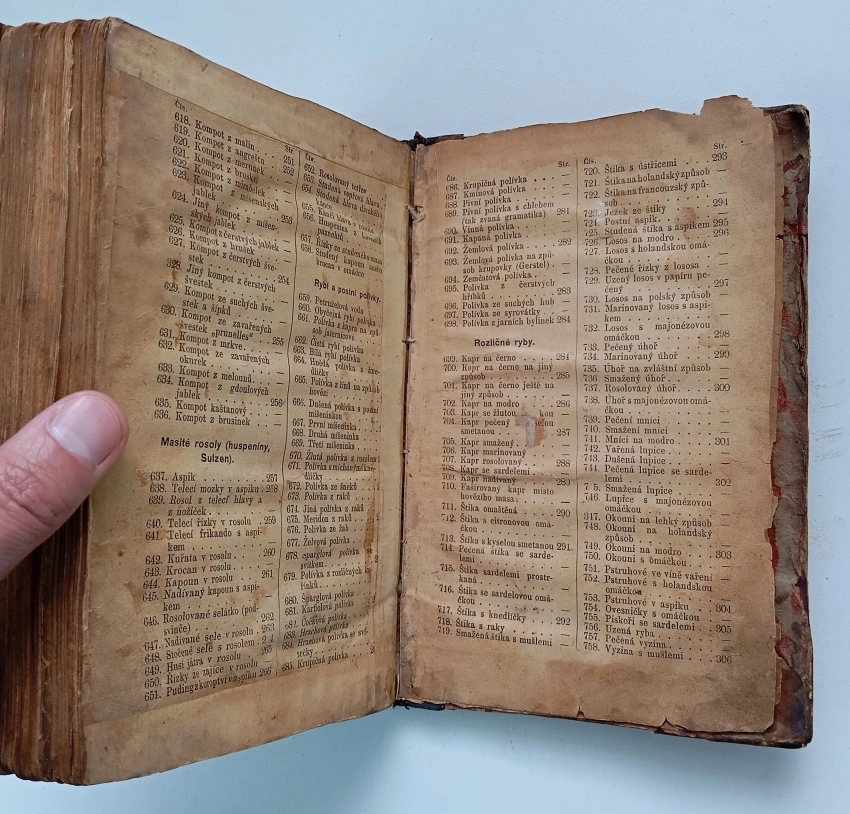 Čís.
Str.
618. Kompot z malin . . 251
619. Kompot z angreštu . 252
620. Kompot z meruněk
621. Kompot z broskví
622. Kompot z mirabelek
623. Kompot z míšenských
jablek . . . . . 253
624. Jiný kompot z míšen-
ských jablek . . . —
625. Kompot z čerstvých jablek —
626. Kompot z hrušek . . —
627. Kompot z čerstvých šve-
stek . . . . . 254
328. Jiný kompot z čerstvých
švestek . . . . —
629. Kompot ze suchých šve-
stek a šípků . . . —
630. Kompot ze zavařených
švestek „prunelles“ . 255
631. Kompot z mrkve . . —
632. Kompot ze zavařených
okurek . . . . —
633. Kompot z melounů . —
634. Kompot z gdoulových
jablek . . . . 256
635. Kompot kaštanový . —
636. Kompot z brusinek . —
Masité rosoly (huspeniny,
Sulzen).
637. Aspik . . . . . 257
638. Telecí mozky v aspiku . 258
639. Rosol z telecí hlavy a
z nožiček . . . . —
640. Telecí řízky v rosolu . 259
641. Telecí frikando s aspi-
kem . . . . . —
642. Kuřata v rosolu . . 260
643. Krocan v rosolu . . —
644. Kapoun v rosolu . . 261
645. Nadívaný kapoun s aspi-
kem . . . . . —
646. Rosolované selátko (pod-
svinče) . . . . 262
647. Nadívané sele v rosolu . 263
648. Stočené sele s rosolem .
649. Husí játra v rosolu . 265
650. Řízky ze zajíce v rosolu —
651. Puding z koroptví v aspiku 266
Čís.
652. Rosolovaný tetřev
653. Studená vepřová hlava
654. Studená hlava divokého
kance
655.
656. Huspenina z
657. Řízky ze studeného masa
658. Studený kapoun nebo
krocan v omáčce
Rybí a postní polívky.
659. Petruželová voda
660. Obyčejná rybí polívka
661. Polívka z kapra na způ-
sob jaternicové
662. Čistá rybí polívka
663. Bílá rybí polívka
664. Hnědá polívka s kne-
dlíčky
665. Polívka z línů na způsob
hovězí
666. Dušená polívka s postní
míšeninkou
667. První míšeninka
668. Druhá míšeninka
669. Třetí míšeninka
670. Žlutá polívka s rosolem
671. Polívka s míchanými kne-
dlíčky
672. Polívka ze šneků
673. Polívka z raků
674. Jiná polívka z raků
675. Meridon z raků
676. Polívka ze žab
677. Želvová polívka
678. Sparglová polívka se
svítkem
679. Polívka z rozličných ko-
řínků
680. Šparglová polívka
681. Karfiolová polívka
682. Čočková polívka
683. Hrachová polívka
684. Hrachová polívka se sví-
tečky
685. Krupičná polívka
Čís.
Str.
686. Krupičná polívka . . . —
687. Kmínová polívka . . . —
688. Pivní polívka . . . . —
689. Pivní polívka s chlebem
(tak zvaná gramatika) 281
690. Vinná polívka . . . —
691. Kapaná polívka . . . —
692. Žemlová polívka . . 282
693. Žemlová polívka na způ-
sob krupovky (Gerstel) . —
694. Zemčatová polívka . . —
695. Polívka z čerstvých
hřibků . . . . . 283
696. Polívka ze suchých hub —
697. Polívka ze syrovátky . —
698. Polívka z jarních bylinek 284
Rozličné ryby.
699. Kapr na černo . . . 284
700. Kapr na černo na jiný
způsob . . . . . 285
701. Kapr na černo ještě na
jiný způsob . . . . —
702. Kapr na modro . . . 286
703. Kapr se žlutou kou —
704. Kapr pečený selou
smetanou . . . . 287
705. Kapr smažený . . . —
706. Kapr marinovaný . . —
707. Kapr rosolovaný . . 288
708. Kapr se sardelemi . . —
709. Kapr nadívaný . . . 289
710. Fašírovaný kapr místo
hovězího masa . . . —
711. Štika omaštěná . . . 290
712. Štika s citronovou omá-
čkou . . . . . . —
713. Štika s kyselou smetanou 291
714. Pečená štika se sarde-
lemi . . . . . . —
715. Štika sardelemi prostr-
kaná . . . . . . —
716. Štika se sardelovou omá-
čkou . . . . . . —
717. Štika s knedlíčky . . 292
718. Štika s raky . . . . —
719. Smažená štika s mušlemi —
Čís.
Str.
720. Štika s ústřicemi . . 293
721. Štika na holandský způsob —
722. Štika na francouzský způ-
sob . . . . . . —
723. Ježek ze štiky . . . 294
724. Postní aspik . . . . —
725. Studená štika s aspikem 295
726. Losos na modro . . . 296
727. Losos s holandskou omá-
čkou . . . . . . —
728. Pečené řízky z lososa . —
729. Uzený losos v papíru pe-
čený . . . . . . 297
730. Losos na polský způsob —
731. Marinovaný losos s aspi-
kem . . . . . . —
732. Losos s majonézovou
omáčkou . . . . . 298
733. Pečený úhoř . . . . —
734. Marinovaný úhoř . . 299
735. Úhoř na zvláštní způsob —
736. Smažený úhoř . . . —
737. Rosolovaný úhoř . . 300
738. Úhoř s majonézovou omá-
čkou . . . . . . —
739. Pečení mníci . . . . —
740. Smažení mníci . . . —
741. Mníci na modro . . . 301
742. Vařená lupice . . . —
743. Dušená lupice . . . —
744. Pečená lupice se sarde-
lemi . . . . . . 302
7 5. Smažená lupice . . . —
746. Lupice s majonézovou
omáčkou . . . . . —
847. Okouni na lehký způsob —
748. Okouni na holandský
způsob . . . . . —
749. Okouni na modro . . 303
750. Okouni s omáčkou . . —
751. Pstruhové ve víně vaření —
752. Pstruhové s holandskou
omáčkou . . . . . —
753. Pstruhové v aspiku . 304
754. Ovesničky s omáčkou . —
755. Piskoři se sardelemi . 305
756. Uzená ryba . . . . —
757. Pečená vyzina . . . —
758. Vyzina s mušlemi . . 306